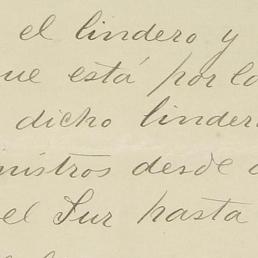 el lindero y
que está por lo
dicho linder
nistros desde
el Sur hasta